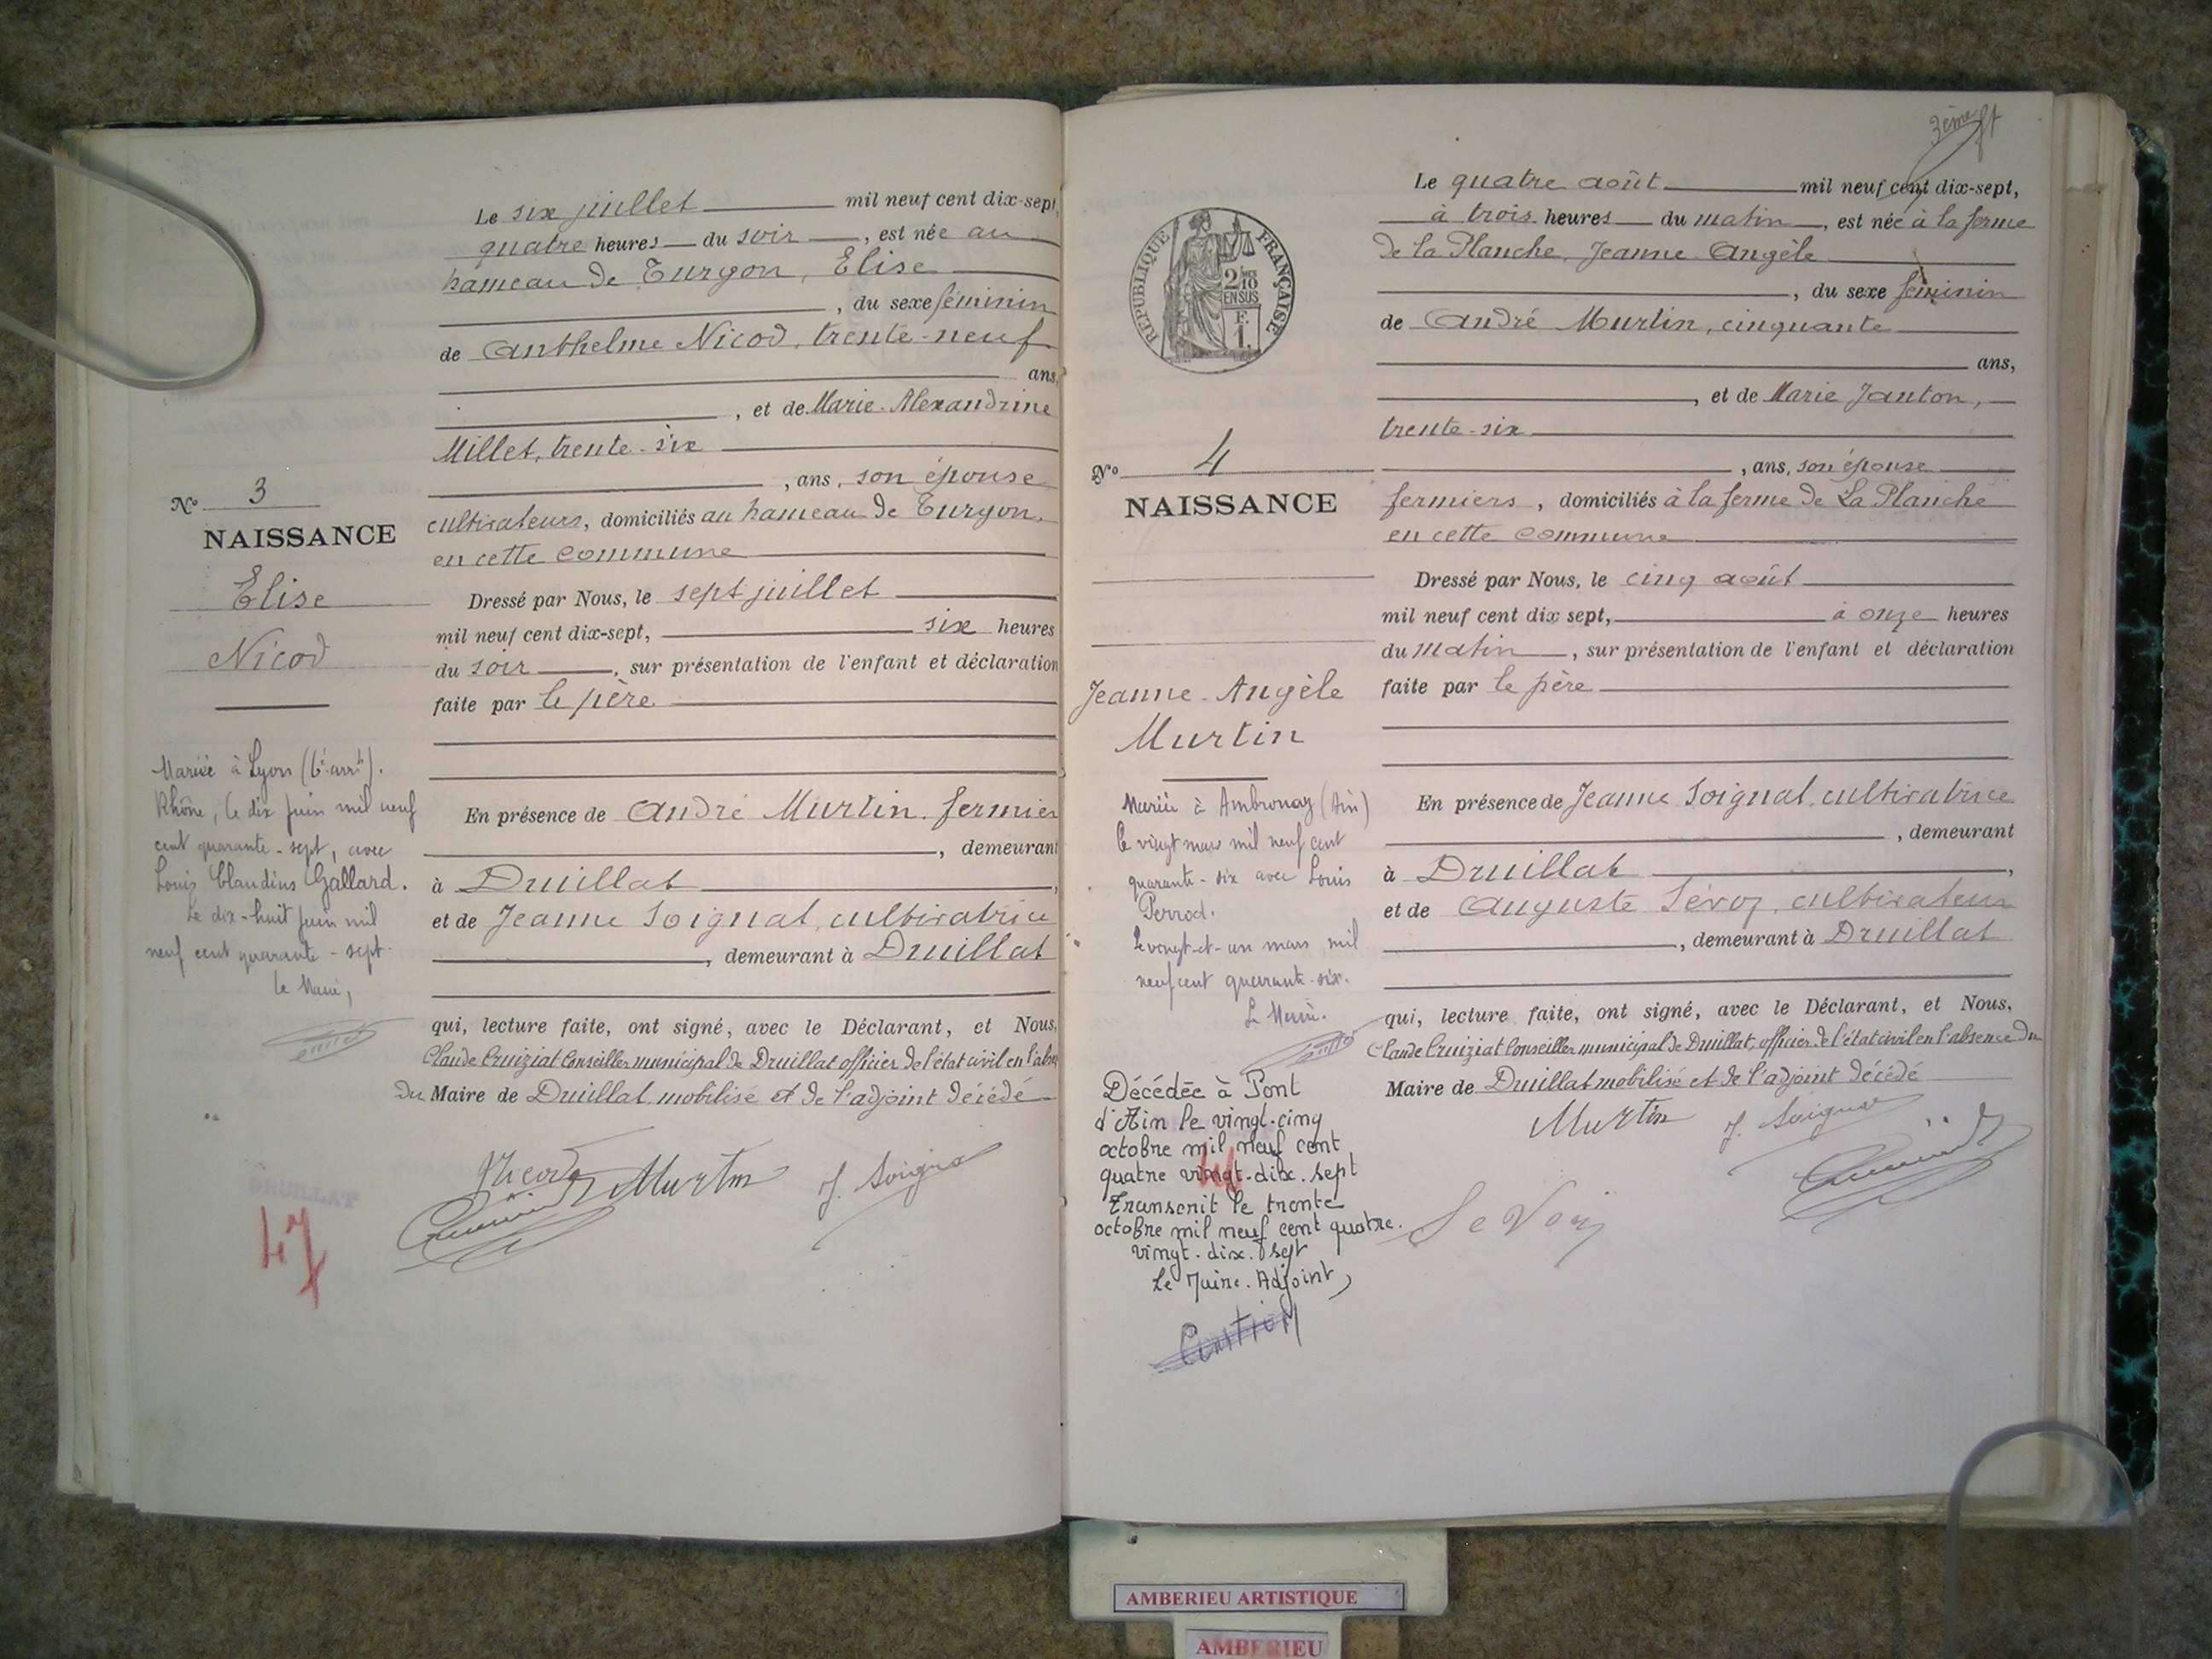 Le six juillet mil neuf cent dix-sept,
quatre heures du soir, est née au
hameau de Turgon, Elise
, du sexe féminin
de Anthelme Nicod, trente-neuf
ans,
, et de Marie-Alexandrine
Millet, trente-six
, ans, son épouse
cultivateurs, domiciliés au hameau de Turgon,
en cette commune
Nº 3
NAISSANCE
Elise
Nicod
Dressé par Nous, le sept juillet
mil neuf cent dix-sept, six heures
du soir, sur présentation de l'enfant et déclaration
faite par le père
Mariée à Lyon (6e arrt).
Rhône, le dix juin mil neuf
cent quarante-sept, avec
Louis Claudius Gallard.
Le dix-huit juin mil
neuf cent quarante-sept
Le Maire,
En présence de André Murtin, fermier
, demeurant
à Druillat,
et de Jeanne Soignat, cultivatrice
, demeurant à Druillat
qui, lecture faite, ont signé, avec le Déclarant, et Nous,
Claude Cruiziat Conseiller municipal de Druillat officier de l'état civil en l'abs
du Maire de Druillat mobilisé et de l'adjoint décédé
Nicod
Murtin
J. Soignat
DRUILLAT
47
3ème ft
REPUBLIQUE FRANÇAISE
2/10
EN SUS
F.
1.
Le quatre août mil neuf cent dix-sept,
à trois heures du matin, est née à la ferme
de la Planche, Jeanne Angèle
, du sexe féminin
de André Murtin, cinquante
ans,
, et de Marie Janton,
trente-six
, ans, son épouse
fermiers, domiciliés à la ferme de La Planche
en cette commune
Nº 4
NAISSANCE
Jeanne-Angèle
Murtin
Dressé par Nous, le cinq août
mil neuf cent dix sept, à onze heures
du matin, sur présentation de l'enfant et déclaration
faite par le père
Mariée à Ambronay (Ain)
le vingt mars mil neuf cent
quarante-six avec Louis
Perrod.
Le vingt-et-un mars mil
neuf cent quarante-six.
Le Maire.
Décédée à Pont
d'Ain le vingt-cinq
octobre mil neuf cent
quatre vingt-dix-sept
Transcrit le trente
octobre mil neuf cent quatre-
vingt-dix-sept
Le Maire-Adjoint,
En présence de Jeanne Soignat, cultivatrice
, demeurant
à Druillat,
et de Auguste Sévoz, cultivateur
, demeurant à Druillat
qui, lecture faite, ont signé, avec le Déclarant, et Nous,
Claude Cruiziat Conseiller municipal de Druillat, officier de l'état civil en l'absence du
Maire de Druillat mobilisé et de l'adjoint décédé
Murtin
J. Soignat
AMBERIEU ARTISTIQUE
AMBERIEU